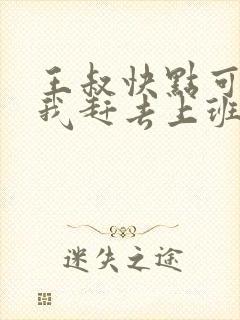 王叔快點可
我赶去上班
迷失之途